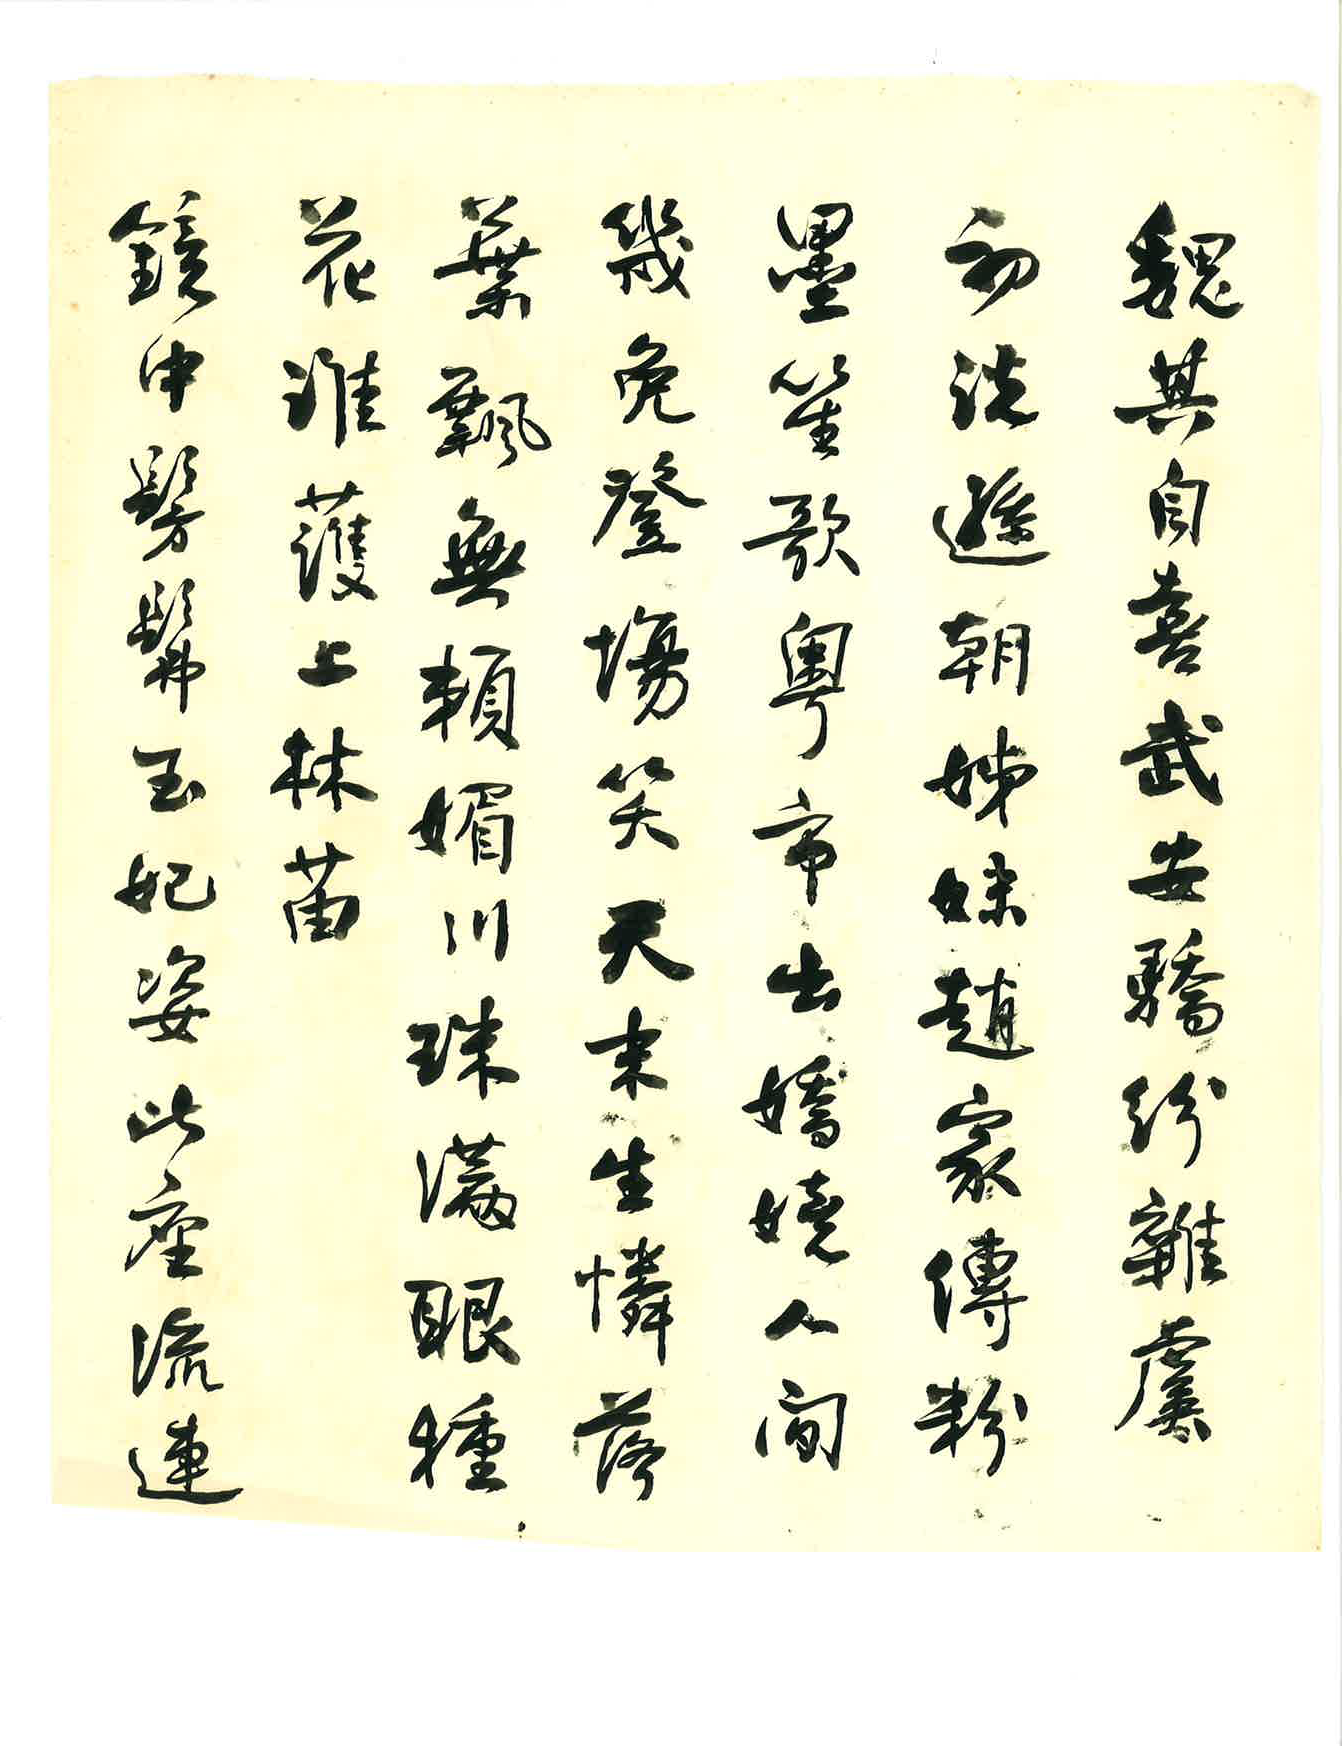 魏其自喜武安驕紛雜虞
初洗遜朝姊妹趙家傅粉
墨笙歌粵市出嬌嬈人間
幾兔登場笑天末生憐落
葉飄無賴媚川珠滿眼種
花誰護上林苗
鏡中髣髴玉妃姿此座流連